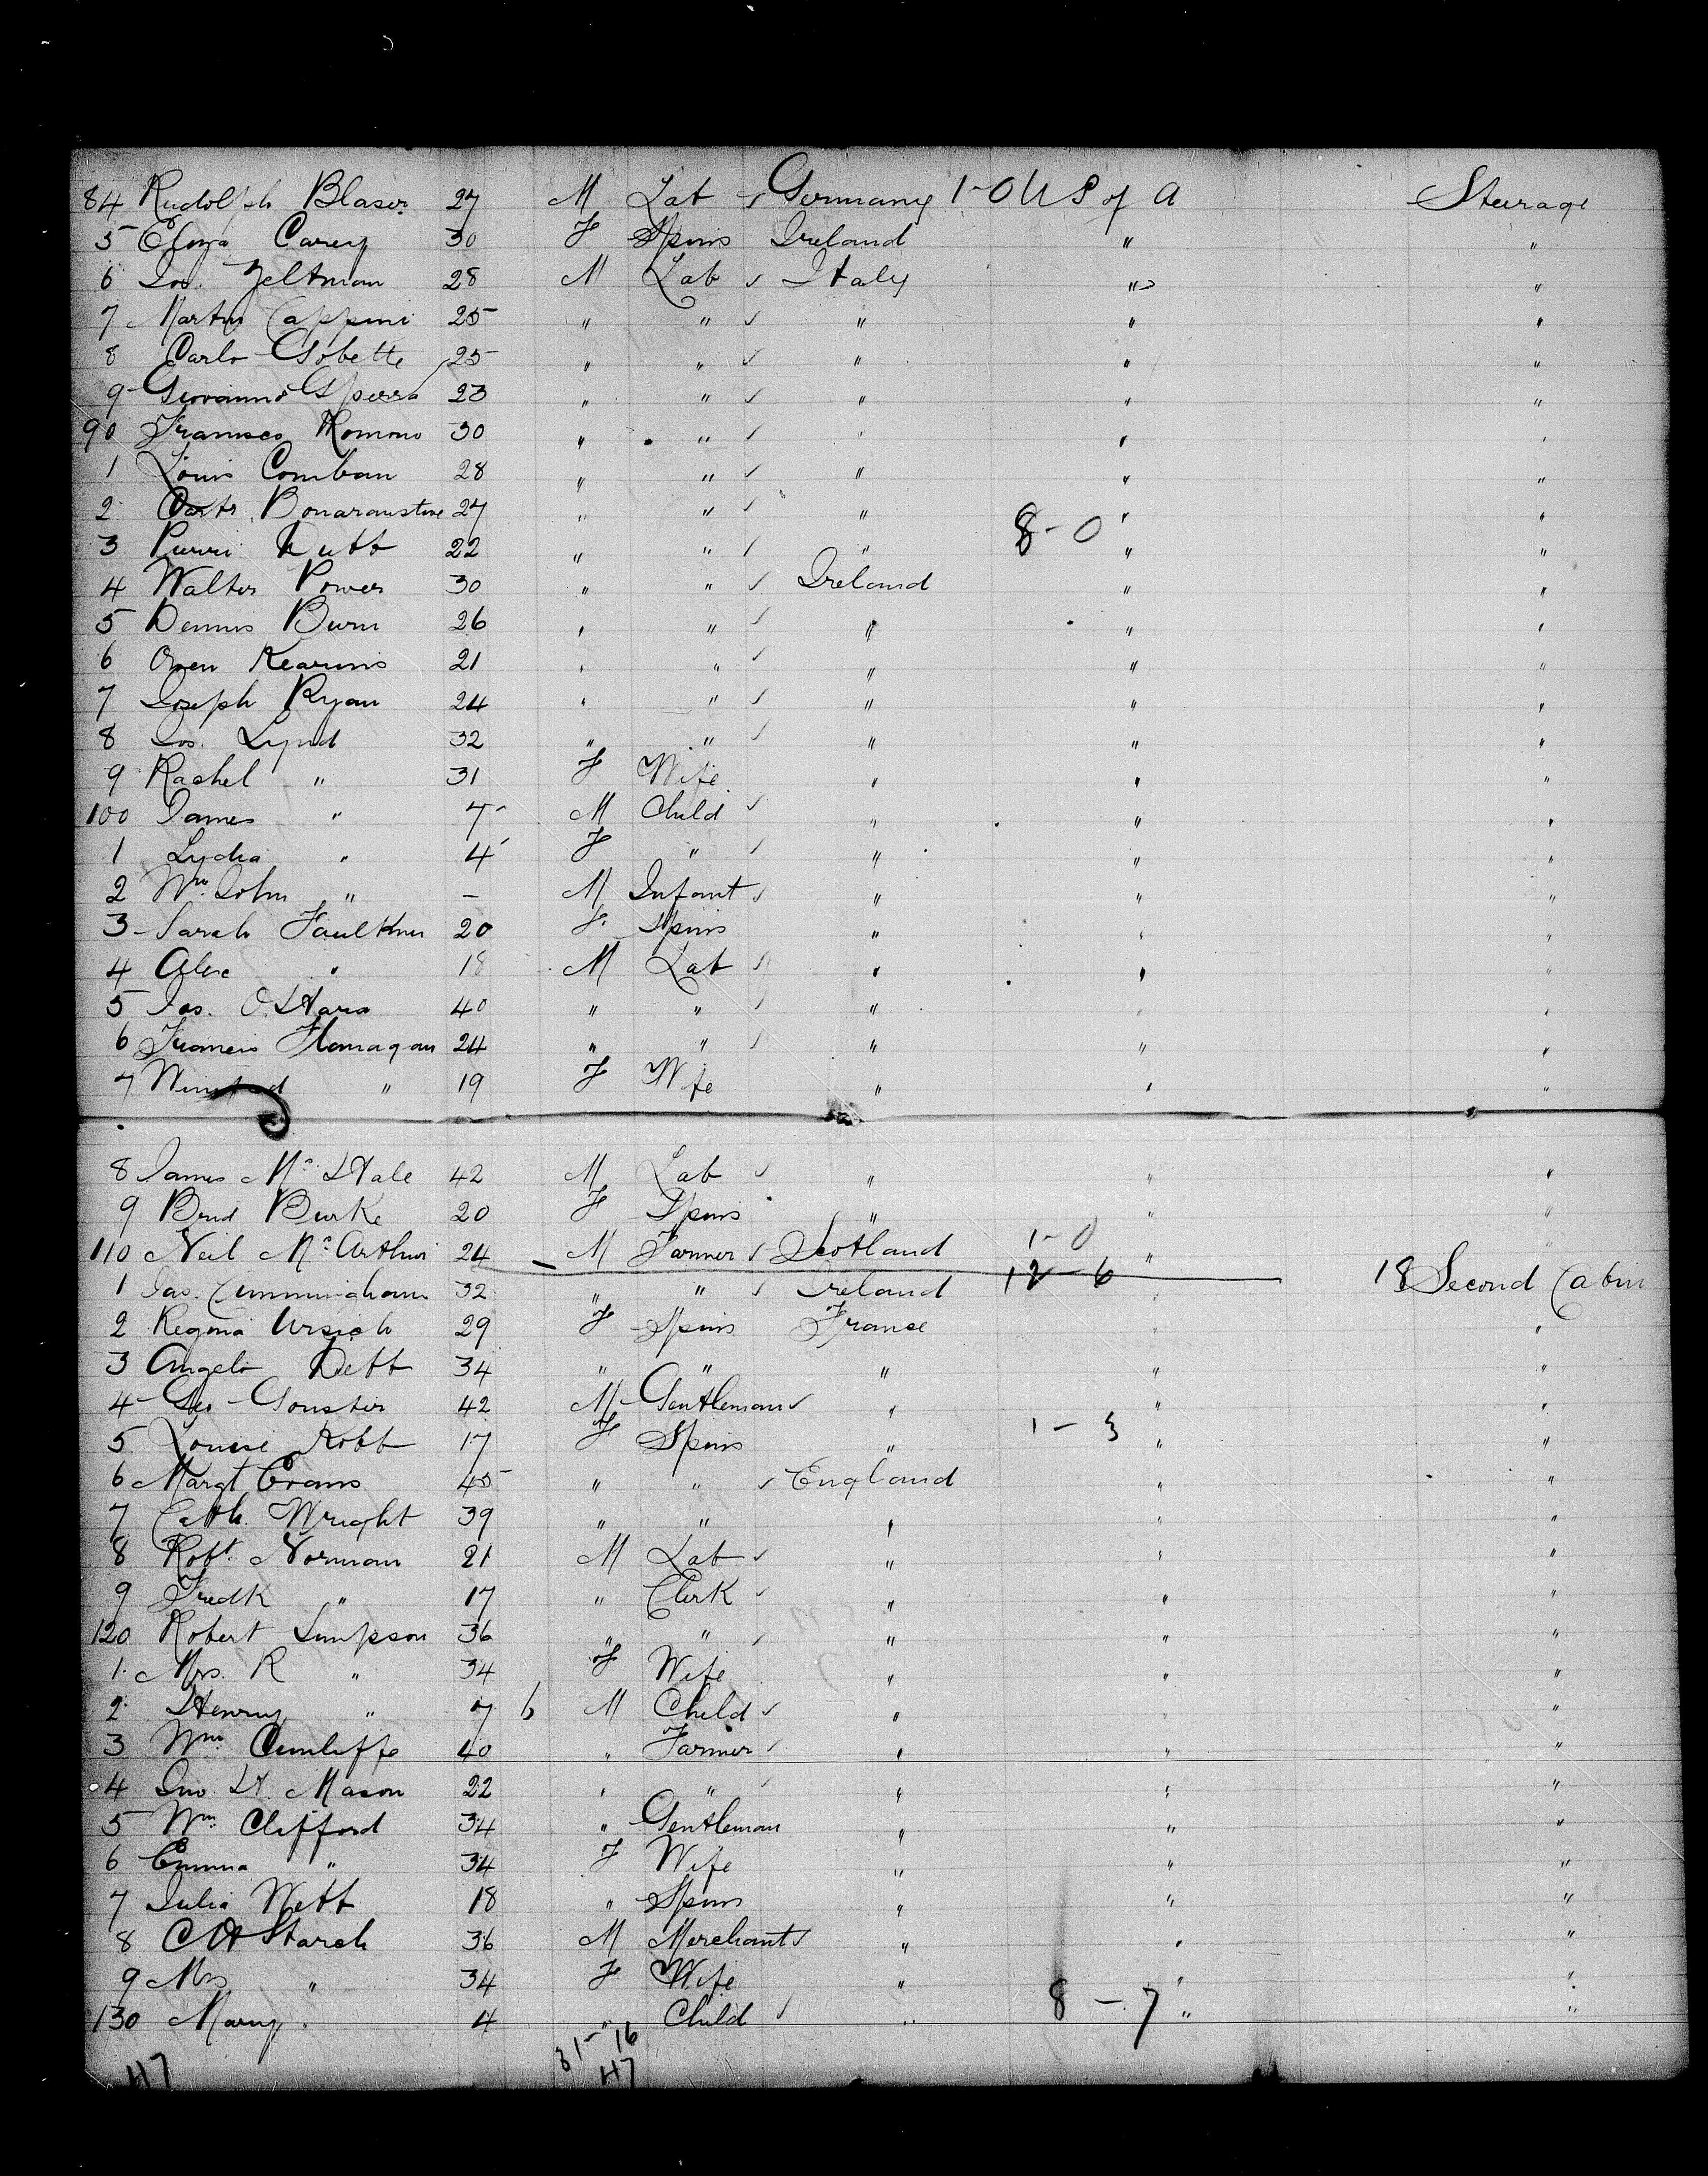 84 Rudolph Blaser 27 M Lab ✓ Germany 1-0 U S of A Steerage
5 Eliza Carey 30 F Spins Ireland " "
6 Jos. Zeltman 28 M Lab ✓ Italy " "
7 Martin Cappini 25 " " ✓ " " "
8 Carlo Gobette 25 " " ✓ " " "
9 Giovanni Sperra 23 " " ✓ " " "
90 Fransisco Romono 30 " " ✓ " " "
1 Louis Comban 28 " " ✓ " " "
2 27 " " ✓ " " "
3 Pierri Hutt 22 " " ✓ " 8-0 " "
4 Walter Power 30 " " ✓ Ireland " "
5 Dennis Burn 26 " " ✓ " " "
6 Owen Kearins 21 " " ✓ " " "
7 Joseph Ryan 24 " " ✓ " " "
8 Jos. Lynd 32 " " ✓ " " "
9 Rachel " 31 F Wife " " "
100 James " 7 M Child ✓ " " "
1 Lydia " 4 F " ✓ " " "
2 Wm John " - M Infant ✓ " " "
3 Sarah Faulkner 20 F Spins " " "
4 Alex " 18 M Lab ✓ " " "
5 Jas. O'Hara 40 " " ✓ " " "
6 Francis Flanagan 24 " " ✓ " " "
7 " 19 F Wife " " "
8 James McHale 42 M Lab ✓ " " "
9 Brid Burke 20 F Spins " " "
110 Neil McArthur 24 M Farmer ✓ Scotland 1-0 " "
1 Jas. Cunningham 32 " " ✓ Ireland 12-6 " 18 Second Cabin
2 Regina Ursich 29 F Spins France " "
3 Angelo 34 " " " " "
4 Geo Gonster 42 M Gentleman ✓ " " "
5 Louise Robb 17 F Spins " 1-3 " "
6 Margt Evans 45 " " ✓ England " "
7 Cath. Wright 39 " " " " "
8 Robt. Norman 21 M Lab ✓ " " "
9 Fredk " 17 " Clerk ✓ " " "
120 Robert Simpson 36 " " ✓ " " "
1 Mrs. R " 34 F Wife " " "
2 Henry " 7 6 M Child ✓ " " "
3 Wm Cunliffe 40 " Farmer ✓ " " "
4 Jno. H. Mason 22 " " ✓ " " "
5 Wm. Clifford 34 " Gentleman " " "
6 Emma " 34 F Wife " " "
7 Julia Webb 18 " Spins " " "
8 C H Starch 36 M Merchant ✓ " " "
9 Mrs " 34 F Wife " " "
130 Mary " 4 " Child ✓ " 8-7 " "
31-16
47 47